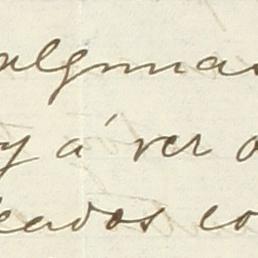 algunas
y á ver
eados co